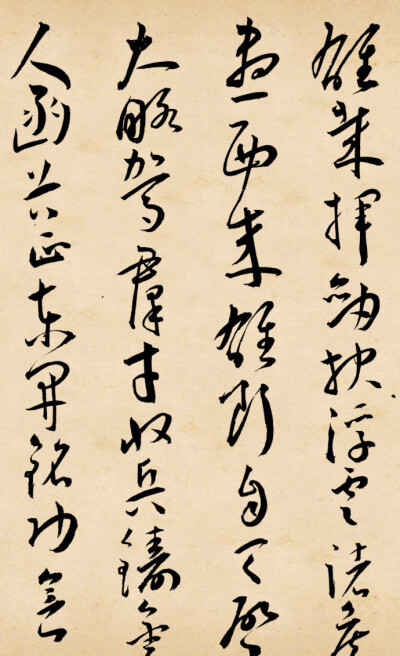 雄哉揮劍決浮雲諸侯
盡西來雄斷自天啓
大略駕羣才收兵鑄金
人函谷正東開銘功會